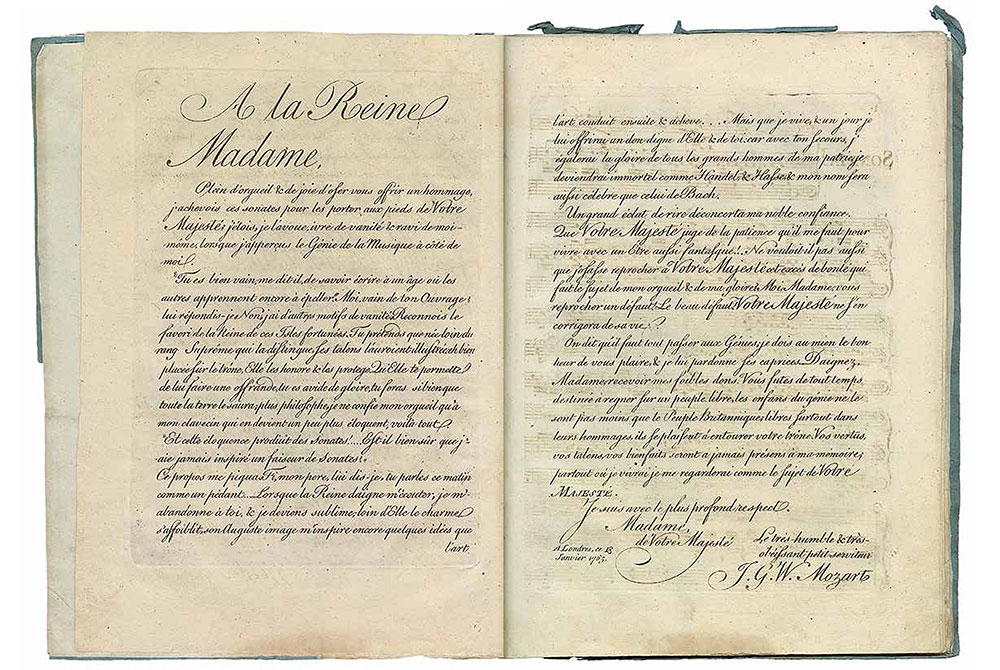 A la Reine
Madame,
Plein d'orgueil & de joie d'oser vous offrir un hommage,
j'achevois ces sonates pour les porter aux pieds de Votre
Majesté; j'étois, je l'avoue, ivre de vanité & ravi de moi-
même, lorsque j'apperçus le Génie de la Musique à côté de
moi.
"Tu es bien vain, me dit-il, de savoir écrire à un âge où les
autres apprennent encore à épeller. Moi, vain de ton Ouvrage!
lui répondis-je. Non, j'ai d'autres motifs de vanité. Reconnois le
favori de la Reine de ces Isles fortunées. Tu prétends que née loin du
rang Suprême qui la distingue, ses talens l'auroient illustrée: eh bien
placée sur le trône, Elle les honore & les protege. Qu'Elle te permette
de lui faire une offrande, tu es avide de gloire, tu feras si bien que
toute la terre le saura; plus philosophe, je ne confie mon orgueil qu'à
mon clavecin qui en devient un peu plus éloquent, voilà tout.
"Et cette éloquence produit des Sonates!.... Est-il bien sûr que j'-
aie jamais inspiré un faiseur de Sonates?
Ce propos me piqua. Fi, mon pere, lui dis-je, tu parles ce matin
comme un pédant.... Lorsque la Reine daigne m'écouter, je m'
abandonne à toi, & je deviens sublime; loin d'Elle le charme
s'affoiblit, son Auguste image m'inspire encore quelques idées que
l'art
l'art conduit ensuite & acheve... Mais que je vive, & un jour je
lui offrirai un don digne d'Elle & de toi; car avec ton secours, j'
égalerai la gloire de tous les grands hommes de ma patrie, je
deviendrai immortel comme Händel, & Hasse, & mon nom sera
aussi célebre que celui de Bach.
Un grand éclat de rire déconcerta ma noble confiance.
Que Votre Majesté juge de la patience qu'il me faut pour
vivre avec un Etre aussi fantasque!... Ne vouloit-il pas aussi
que j'osasse reprocher à Votre Majesté cet excès de bonté qui
fait le sujet de mon orgueil & de ma gloire. Moi, Madame, vous
reprocher un défaut. Le beau défaut! Votre Majesté ne s'en
corrigera de sa vie.
On dit qu'il faut tout passer aux Génies; je dois au mien le bon-
heur de vous plaire, & je lui pardonne ses caprices. Daignez,
Madame, recevoir mes foibles dons. Vous futes de tout temps
destinée à regner sur un peuple libre; les enfans du génie ne le
sont pas moins que le Peuple Britannique; libres surtout dans
leurs hommages, ils se plaisent à entourer votre trône. Vos vertus,
vos talens, vos bienfaits seront à jamais présens à ma mémoire;
partout où je vivrai je me regarderai comme le sujet de Votre
MAJESTÉ.
Je suis avec le plus profond respect.
Madame,
de Votre Majesté
A Londres, ce 18
Janvier 1765.
Le très-humble & très-
obéissant petit serviteur
J. G. W. Mozart